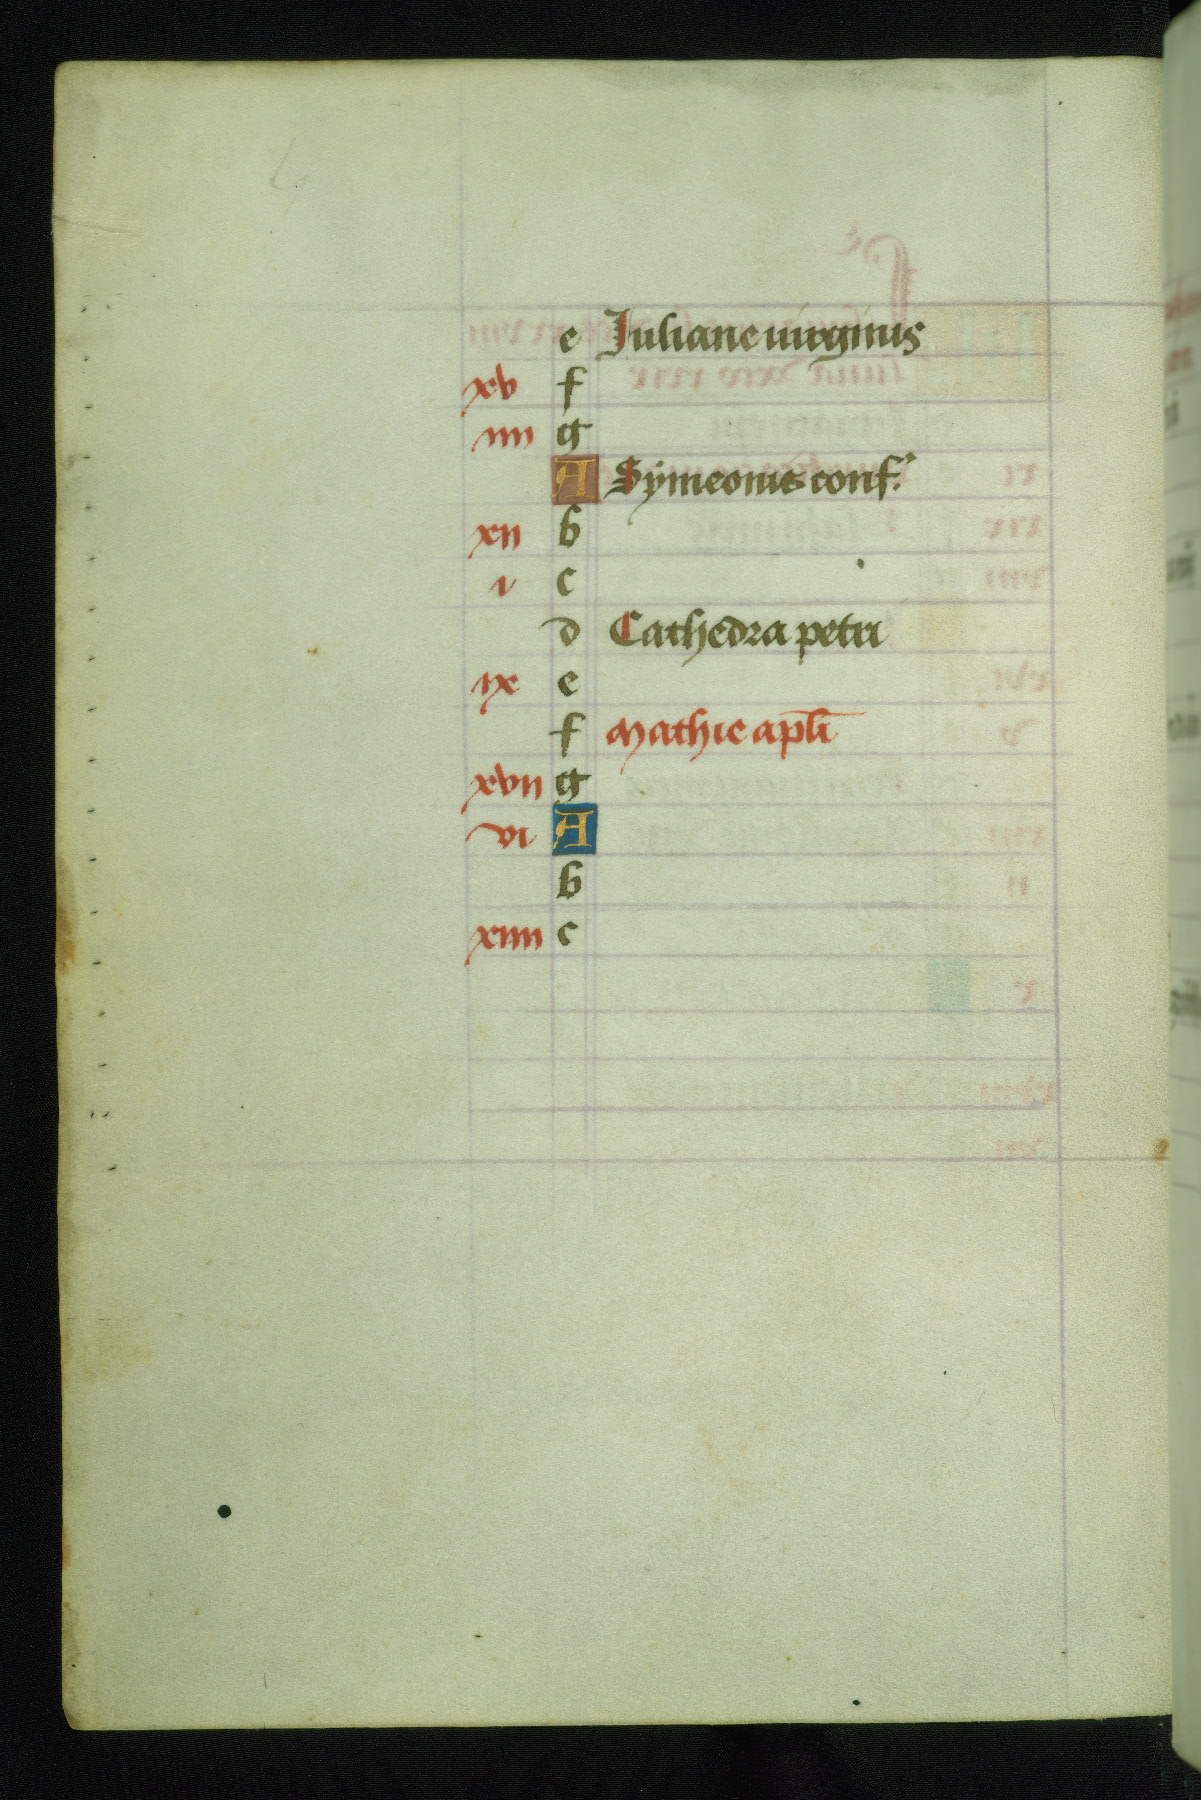 e Juliane uirginis
xv f
iiii g
A Symeonis conf.
xii b
i c
d Cathedra petri
ix e
f Mathie apli
xvii g
vi A
b
xiiii c